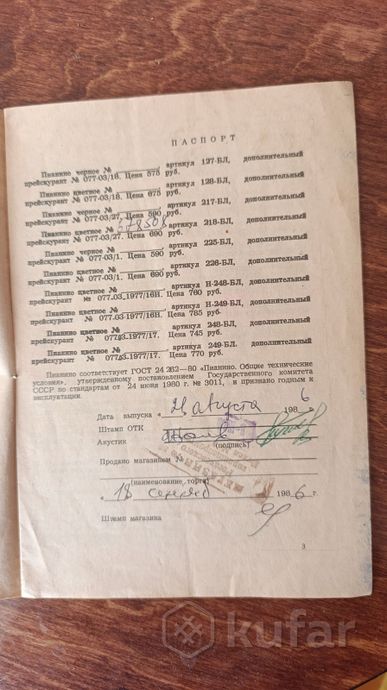 ПАСПОРТ
Пианино черное № артикул 127-БЛ, дополнительный
прейскурант № 077-03/18. Цена 575 руб.
Пианино цветное № артикул 128-БЛ, дополнительный
прейскурант № 077-03/18. Цена 675 руб.
Пианино черное № артикул 217-БЛ, дополнительный
прейскурант № 077-03/27. Цена 590 руб.
Пианино цветное № артикул 218-БЛ, дополнительный
прейскурант № 077-03/27. Цена 690 руб.
Пианино черное № артикул 225-БЛ, дополнительный
прейскурант № 077-03/1. Цена 590 руб.
Пианино цветное № артикул 226-БЛ, дополнительный
прейскурант № 077-03/1. Цена 690 руб.
Пианино цветное № артикул Н-248-БЛ, дополнительный
прейскурант № 077.03.1977/16Н. Цена 760 руб.
Пианино цветное № артикул Н-249-БЛ, дополнительный
прейскурант № 077-03.1977/16Н. Цена 785 руб.
Пианино цветное № артикул 248-БЛ, дополнительный
прейскурант № 077-03.1977/17. Цена 745 руб.
Пианино цветное № артикул 249-БЛ, дополнительный
прейскурант № 077-03.1977/17. Цена 770 руб.
Пианино соответствует ГОСТ 24 262—80 «Пианино. Общие технические
условия», утвержденному постановлением Государственного комитета
СССР по стандартам от 24 июня 1980 г. № 3011, и признано годным к
эксплуатации.
Дата выпуска августа 1986
Штамп ОТК
Акустик (подпись)
Продано магазином №
(наименование торга)
18 1986 г.
Штамп магазина
3
kufar